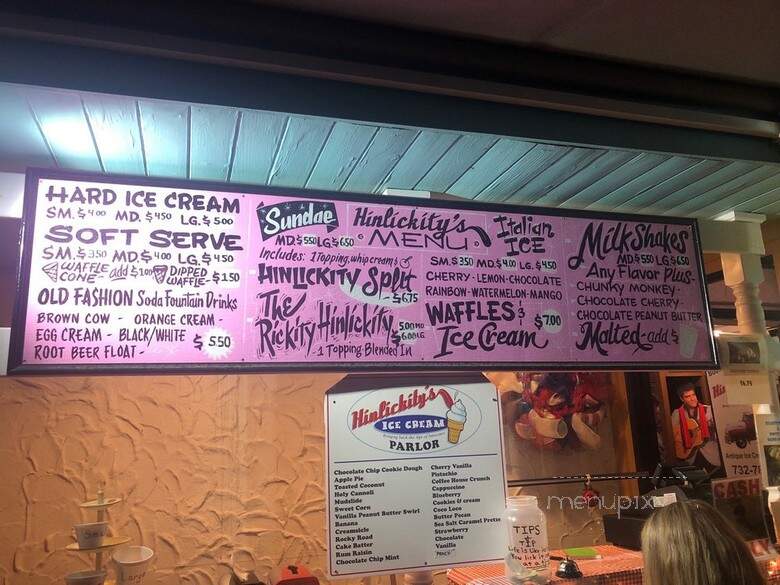 HARD ICE CREAM
SM. $4.00 MD. $4.50 LG. $5.00
SOFT SERVE
SM. $3.50 MD. $4.00 LG. $4.50
WAFFLE CONE - add $1.00
DIPPED WAFFLE - $1.50
OLD FASHION Soda Fountain Drinks
BROWN COW - ORANGE CREAM -
EGG CREAM - BLACK/WHITE
ROOT BEER FLOAT -
$5.50
Sundae
MD. $5.50 LG. $6.50
Includes: 1 Topping, whip cream &
HINLICKITY Split
$6.75
The
Rickity Hinlickity
5.00 MD
$6.00 LG
1 Topping Blended In
Hinlickity's
MENU
Italian
ICE
SM. $3.50 MD. $4.00 LG. $4.50
CHERRY - LEMON - CHOCOLATE
RAINBOW - WATERMELON - MANGO
WAFFLES &
Ice Cream
$7.00
MilkShakes
MD. $5.50 LG. $6.50
Any Flavor Plus -
CHUNKY MONKEY -
CHOCOLATE CHERRY -
CHOCOLATE PEANUT BUTTER
Malted - add $
Hinlickity's
ICE CREAM
PARLOR
Chocolate Chip Cookie Dough
Apple Pie
Toasted Coconut
Holy Cannoli
Mudslide
Sweet Corn
Vanilla Peanut Butter Swirl
Banana
Creamsicle
Rocky Road
Cake Batter
Rum Raisin
Chocolate Chip Mint
Cherry Vanilla
Pistachio
Coffee House Crunch
Cappuccino
Blueberry
Cookies & cream
Coco Loco
Butter Pecan
Sea Salt Caramel Pretze
Strawberry
Chocolate
Vanilla
TIPS
TIP
Life is like
menupix
Antique Ice Cr
732-7
CASH